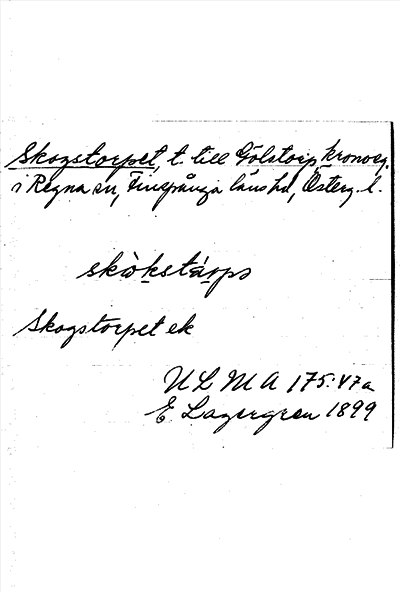 Skogstorpet, t. till Gölstorp, kronoeg.
i Regna sn, Finspånga läns hd, Österg. l.
skòkstárpə
Skogstorpet ek
ULMA 175:47a
E. Lagergren 1899